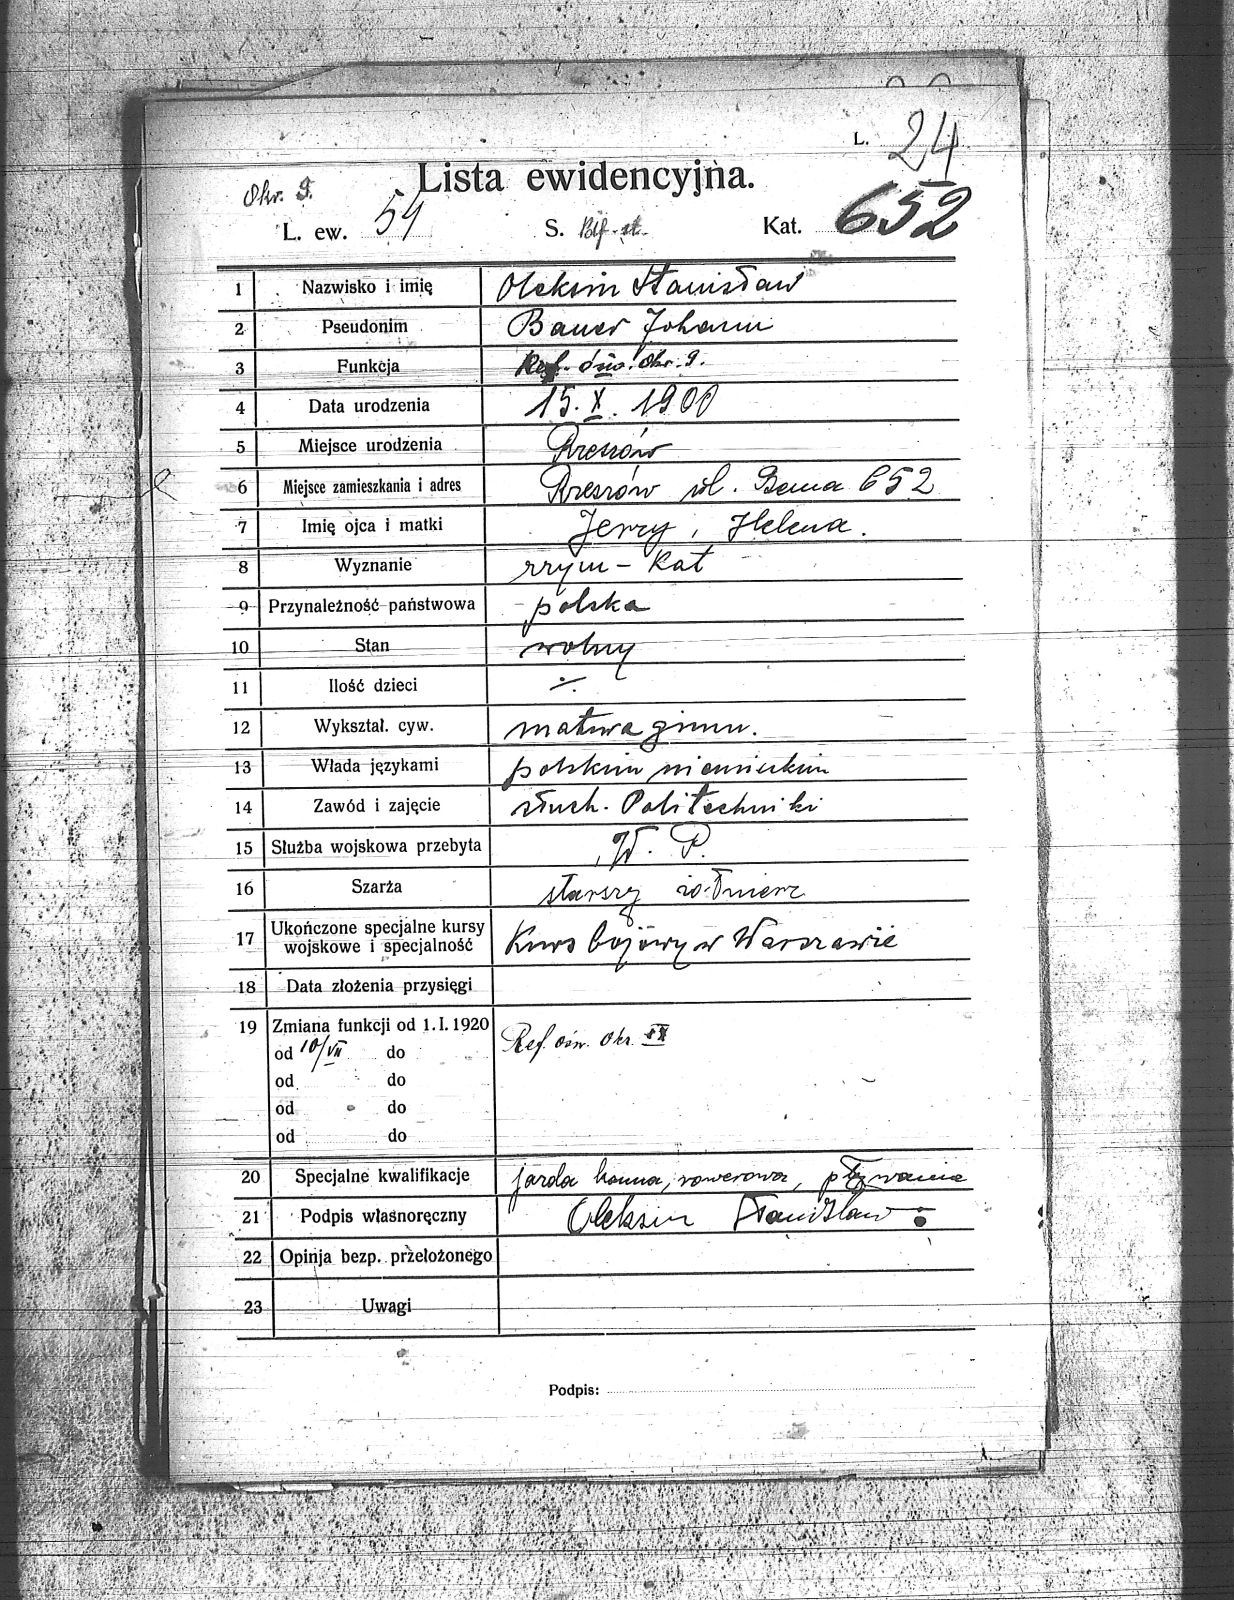 L. 24
Lista ewidencyjna.
Okr. 9.
L. ew. 54 S. Kat. 652
1 Nazwisko i imię Oleksin Stanisław
2 Pseudonim Bauer Johann
3 Funkcja Ref. ośw. Okr. 9.
4 Data urodzenia 15. X. 1900
5 Miejsce urodzenia Rzeszów
6 Miejsce zamieszkania i adres Rzeszów ul. Bema 652
7 Imię ojca i matki Jerzy, Helena.
8 Wyznanie rzym - Kat
9 Przynależność państwowa polska
10 Stan wolny
11 Ilość dzieci ∕.
12 Wykształ. cyw. matura gimn.
13 Włada językami polskim niemieckim
14 Zawód i zajęcie słuch. Politechniki
15 Służba wojskowa przebyta W. P.
16 Szarża starszy żołnierz
17 Ukończone specjalne kursy
wojskowe i specjalność Kurs bojowy w Warszawie
18 Data złożenia przysięgi
19 Zmiana funkcji od 1. I. 1920 Ref. ośw. Okr. IX
od 10/VII do
od do
od do
od do
20 Specjalne kwalifikacje jazda konna, rowerowa, pływanie
21 Podpis własnoręczny Oleksin Stanisław
22 Opinja bezp. przełożonego
23 Uwagi
Podpis: